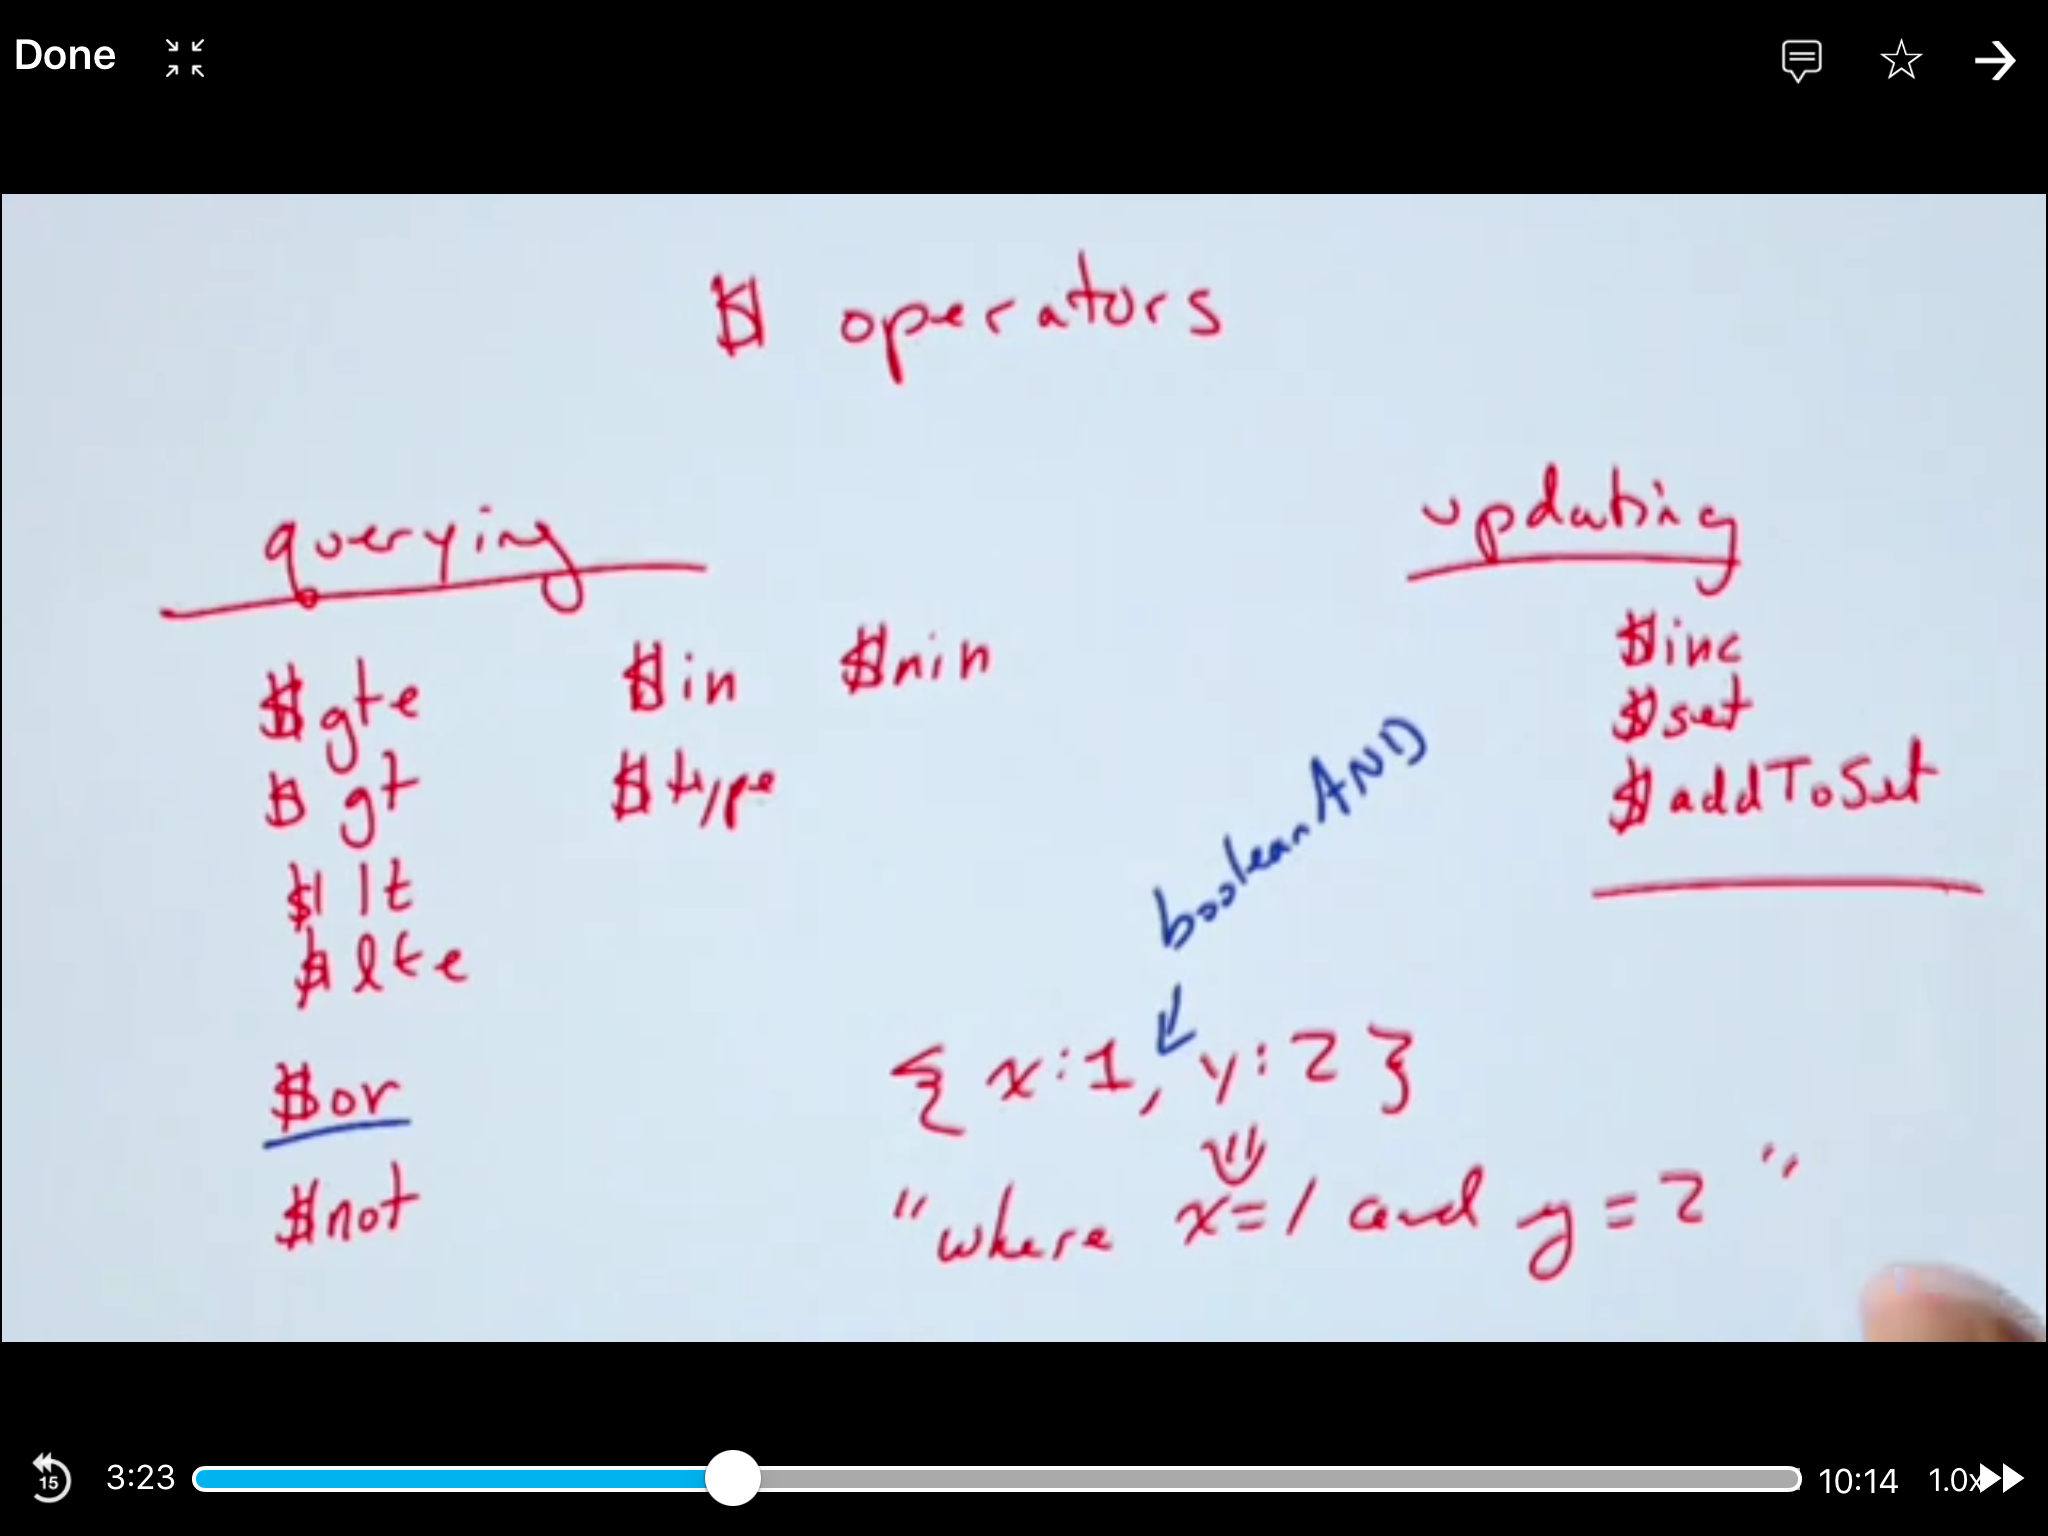 Done
$ operators
querying
$gte
$gt
$lt
$lte
$or
$not
$in $nin
$type
updating
$inc
$set
$addToSet
boolean AND
{ x:1, y:2 }
"where x=1 and y=2"
15 3:23 10:14 1.0x